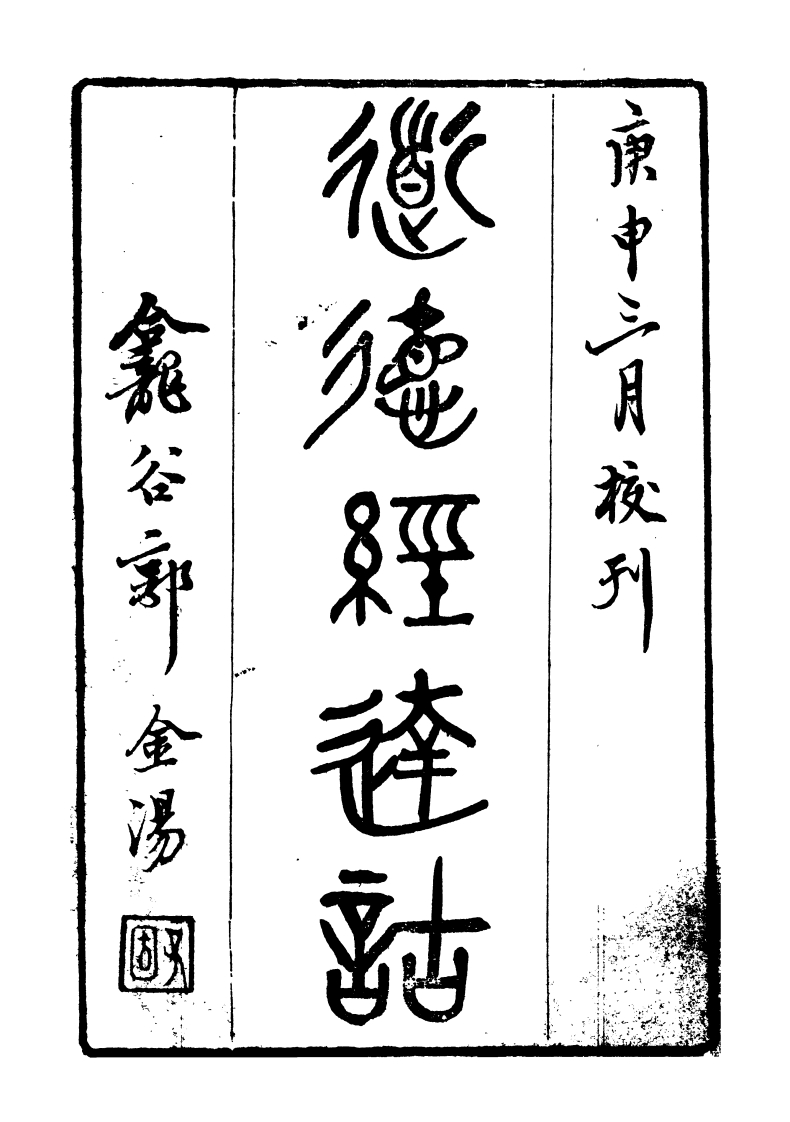 庚申三月校刊
道德經達詁
龕谷郭金湯